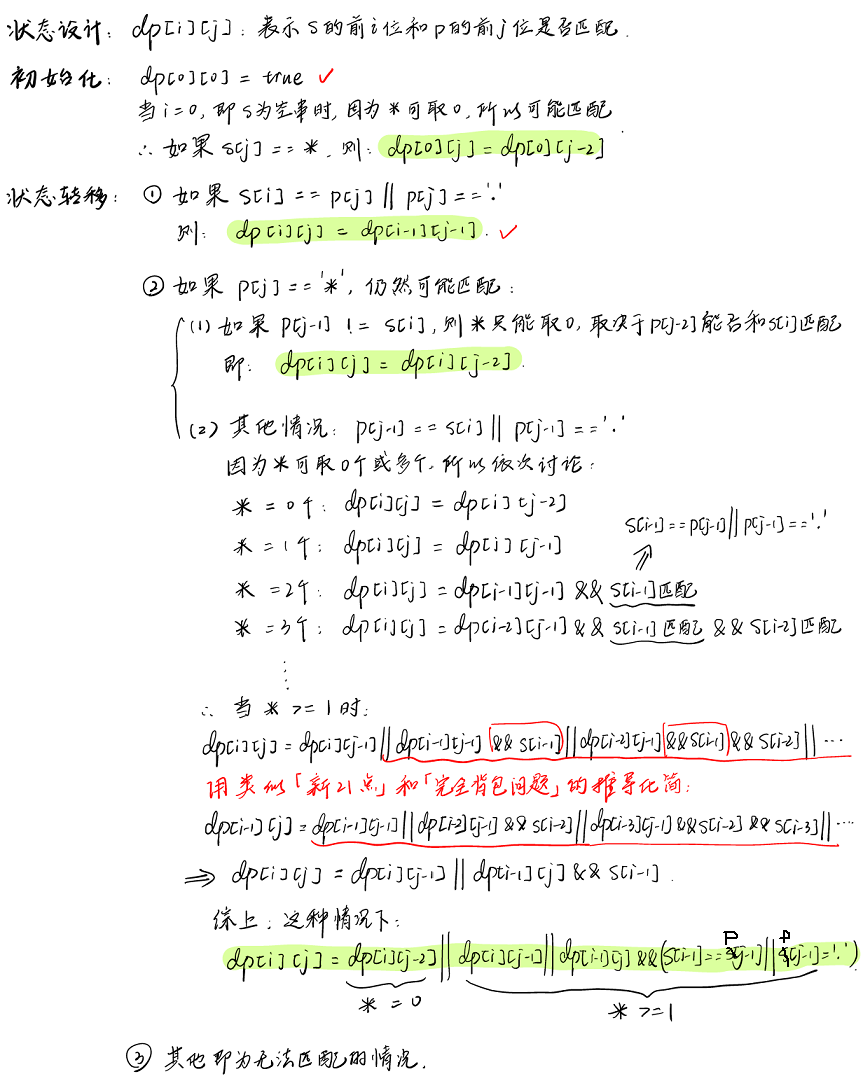 状态设计: dp[i][j]: 表示s的前i位和p的前j位是否匹配.
初始化: dp[0][0] = true ✓
当i=0, 即s为空串时, 因为*可取0, 所以可能匹配
∴ 如果s[j] == *, 则: dp[0][j] = dp[0][j-2]
状态转移: ① 如果 s[i] == p[j] || p[j] == '.'
则: dp[i][j] = dp[i-1][j-1]. ✓
② 如果 p[j] == '*', 仍然可能匹配:
(1) 如果 p[j-1] != s[i], 则*只能取0, 取决于p[j-2]能否和s[i]匹配
即: dp[i][j] = dp[i][j-2].
(2) 其他情况: p[j-1] == s[i] || p[j-1] == '.'
因为*可取0个或多个, 所以依次讨论:
* = 0个: dp[i][j] = dp[i][j-2]
s[i-1] == p[j-1] || p[j-1] == '.'
* = 1个: dp[i][j] = dp[i][j-1]
* = 2个: dp[i][j] = dp[i-1][j-1] && s[i-1]匹配
* = 3个: dp[i][j] = dp[i-2][j-1] && s[i-1]匹配 && s[i-2]匹配
⋮
∴ 当 * >= 1 时:
dp[i][j] = dp[i][j-1] || dp[i-1][j-1] && s[i-1] || dp[i-2][j-1] && s[i-1] && s[i-2] || ···
用类似「新21点」和「完全背包问题」的推导化简:
dp[i-1][j] = dp[i-1][j-1] || dp[i-2][j-1] && s[i-2] || dp[i-3][j-1] && s[i-2] && s[i-3] || ···
⇒ dp[i][j] = dp[i][j-1] || dp[i-1][j] && s[i-1].
综上, 这种情况下:
dp[i][j] = dp[i][j-2] || dp[i][j-1] || dp[i-1][j] && (s[i-1] == p[j-1] || p[j-1] = '.')
* = 0 * >= 1
③ 其他即为无法匹配的情况.